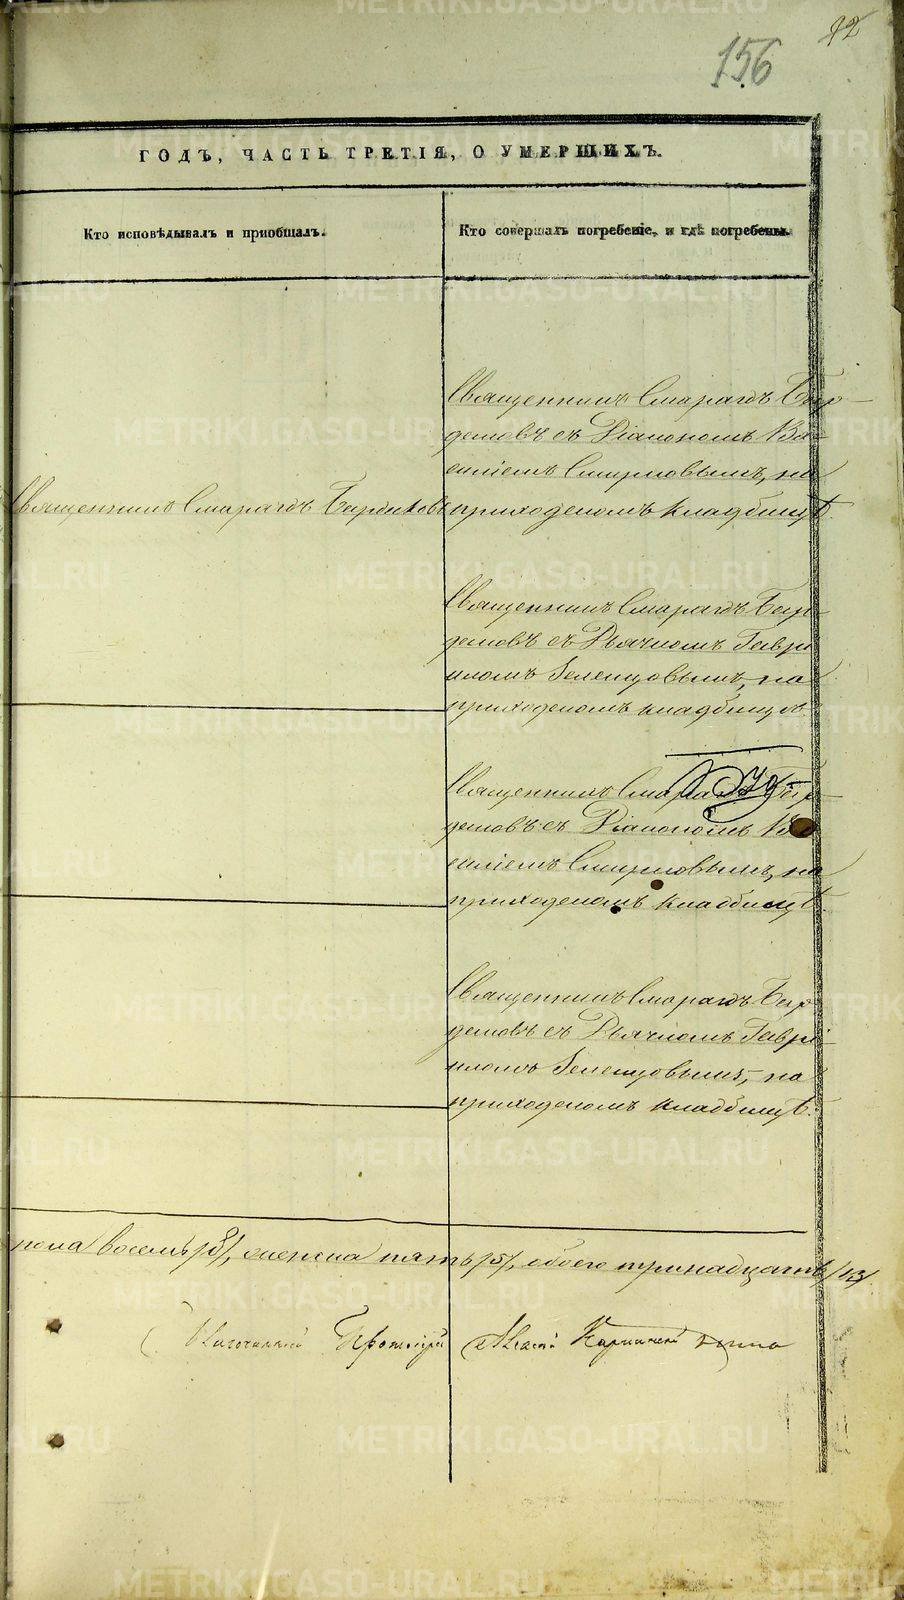 42
156
ГОДЪ, ЧАСТЬ ТРЕТІЯ, О УМЕРШИХЪ.
Кто исповѣдывалъ и пріобщалъ.
Кто совершалъ погребеніе, и гдѣ погребены.
Священникъ Смарагдъ Бир-
демовъ съ Діакономъ Ва-
силіемъ Смирновымъ, на
приходскомъ кладбищѣ.
Священникъ Смарагдъ
Священникъ Смарагдъ Бир-
демовъ съ Дьячкомъ Гаврі
иломъ Зеленцовымъ, на
приходскомъ кладбищѣ.
Священникъ Смарагдъ Бир-
демовъ съ Діакономъ Ва
силіемъ Смирновымъ, на
приходскомъ кладбищѣ.
Священникъ Смарагдъ Бир
демовъ съ Дьячкомъ Гаврі-
иломъ Зеленцовымъ, на
приходскомъ кладбищѣ.
пола восемь /8/, женска пять /5/, обоего тринадцать /13/.
Благочинный Протоіерей
METRIKI.GASO-URAL.RU